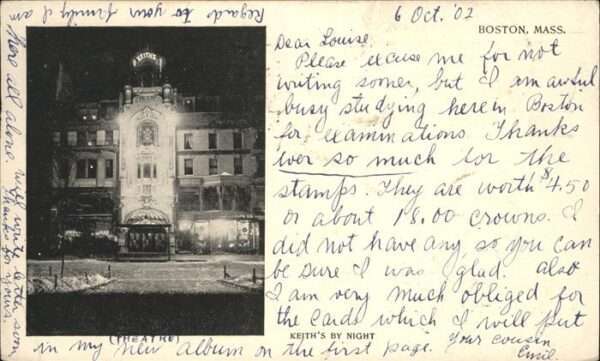 6 Oct. '02
BOSTON, MASS.
Dear Louise.
Please excuse me for not
writing sooner, but I am awful
busy studying here in Boston
for examinations. Thanks
ever so much for the
stamps. They are worth $4.50
or about 18.00 crowns. I
did not have any so you can
be sure I was glad. Also
I am very much obliged for
the cards which I will put
in my new album on the first page. Your cousin
Emil.
Regards to your family I am
here all alone. Will write letter soon
Thanks for yours.
KEITH'S
(THEATRE)
KEITH'S BY NIGHT